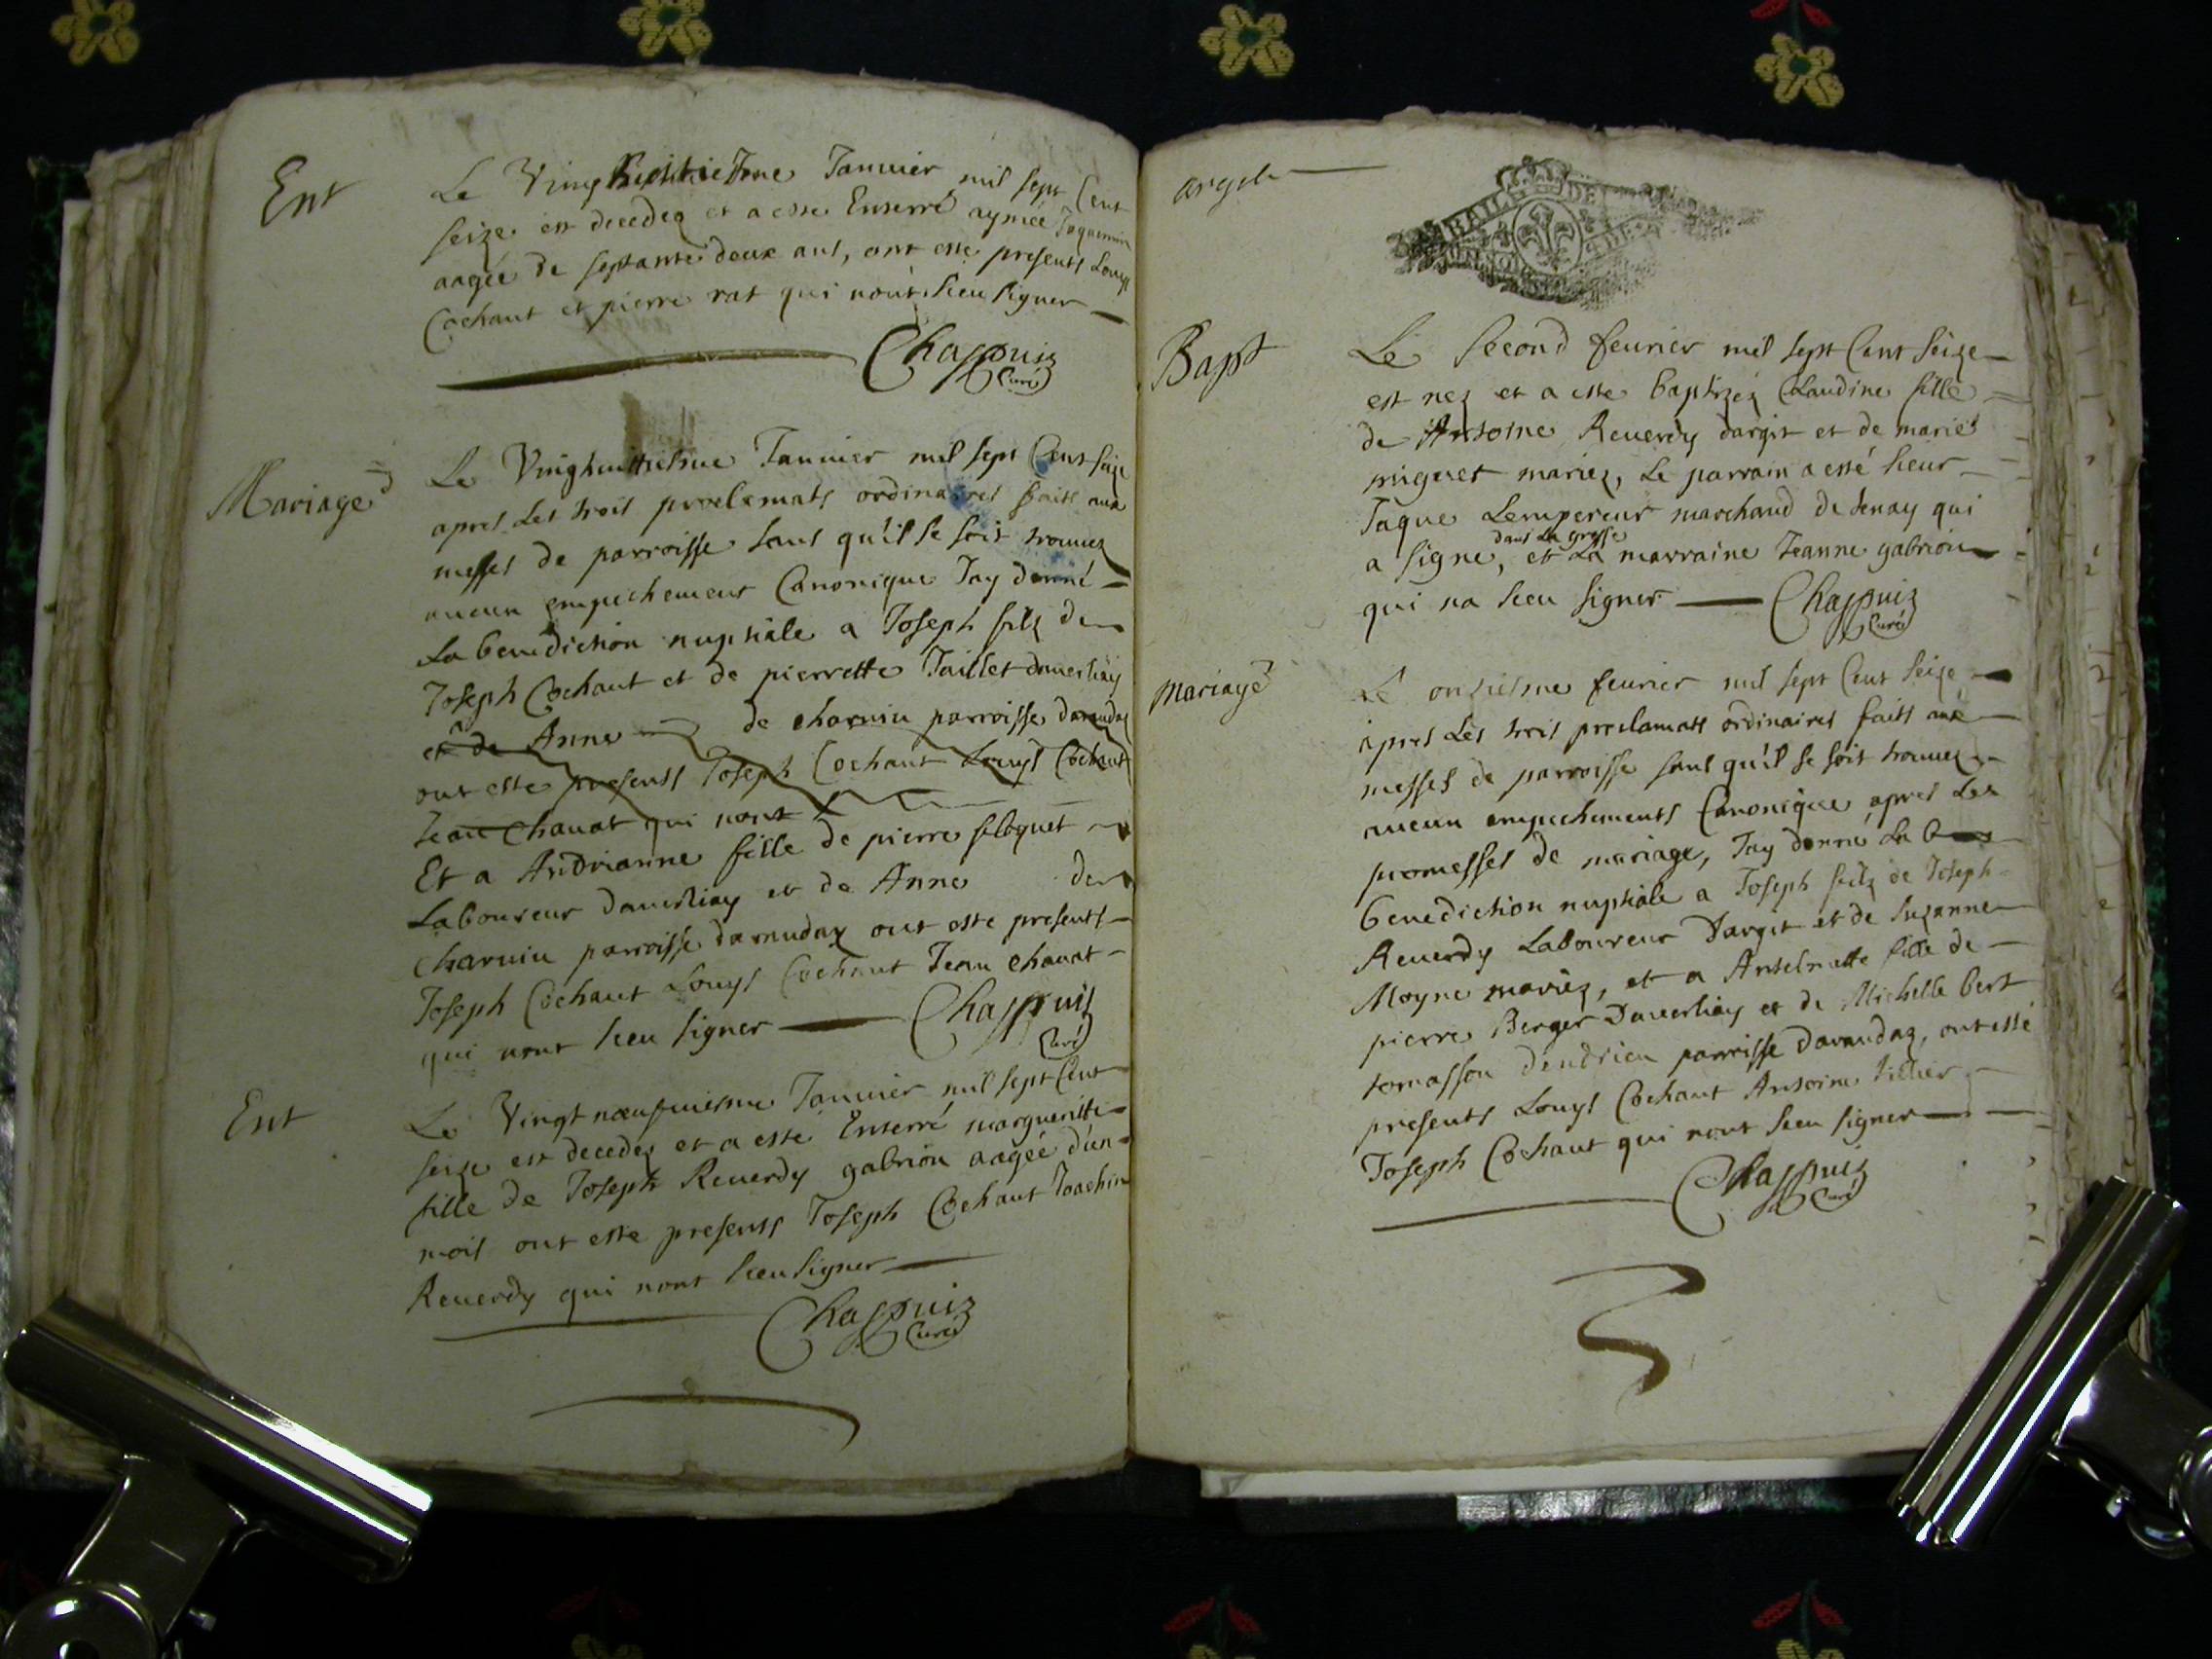 Ent
Le Vingt huictiesme Januier mil sept Cent
seize est decedez et a esté Enterré aymée Jaquemin
aagée de septante deux ans, ont esté presents Louys
Cochaut et pierre rat qui nont sceu signer
Chappuiz
Curé
Mariage
Le Vinghuittiesme Januier mil sept Cent seize
apres les trois proclamats ordinaires faits aux
messes de parroisse sans qu'il se soit trouuez
aucun empechement Canonique Jay donné
La benediction nuptiale a Joseph filz de
Joseph Cochaut et de pierrette Taillet
et de Anne de charuin parroisse darandaz
ont esté presents Joseph Cochaut Louys Cochaut
Jean Chauat qui nont
Et a Andrianne fille de pierre
Laboureur et de Anne de
charuin parroisse darandaz ont esté presents
Joseph Cochaut Louys Cochaut Jean chauat
qui nont sceu signer Chappuiz
Curé
Ent
Le Vingt nœufuiesme Januier mil sept Cent
seize est decedez et a esté Enterré margueritte
fille de Joseph Reuerdy gabrion aagée d'un
mois ont esté presents Joseph Cochaut Joachin
Reuerdy qui nont sceu signer
Chappuiz
Curé
argit
BAILL DE
Bapt
Le second feurier mil sept Cent seize
est nez et a esté baptizéz Claudine fille
de Antoine Reuerdy dargit et de marie
miguet mariez, Le parrain a essé sieur
Jaque Lempereur marchand de tenay qui
dans la grosse
a signe, et La marraine Jeanne gabrion
qui na sceu signer Chappuiz
Curé
mariage
Le onziesme feurier mil sept Cent seize
apres Les trois proclamats ordinaires faits aux
messes de parroisse sans qu'il se soit trouuez
aucun empechements Canonique apres Les
promesses de mariage, Jay donné La
benediction nuptiale a Joseph filz de Joseph
Reuerdy Laboureur Dargit et de Suzanne
Moyne mariez, et a Antelmette fille de
pierre Berger et de Michelle bert
tomasson dindrieu parroisse darandaz, ont essé
presents Louys Cochaut Antoine tillier
Joseph Cochaut qui nont sceu signer
Chappuiz
Curé